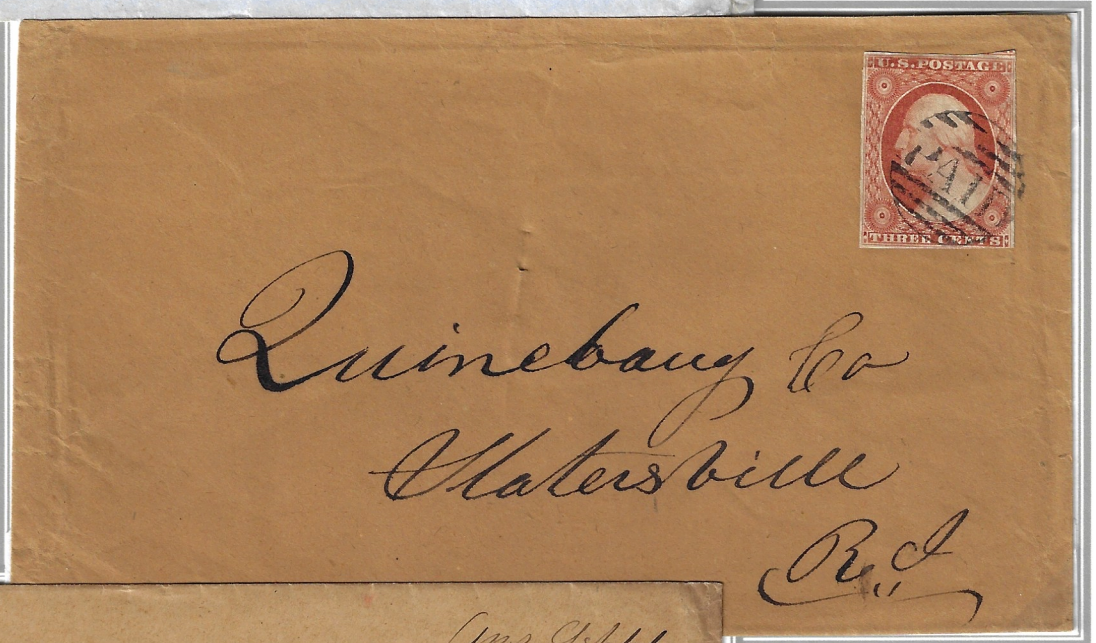 U.S. POSTAGE
PAID
THREE CENTS
Quinebaug Co
Slatersville
R.I